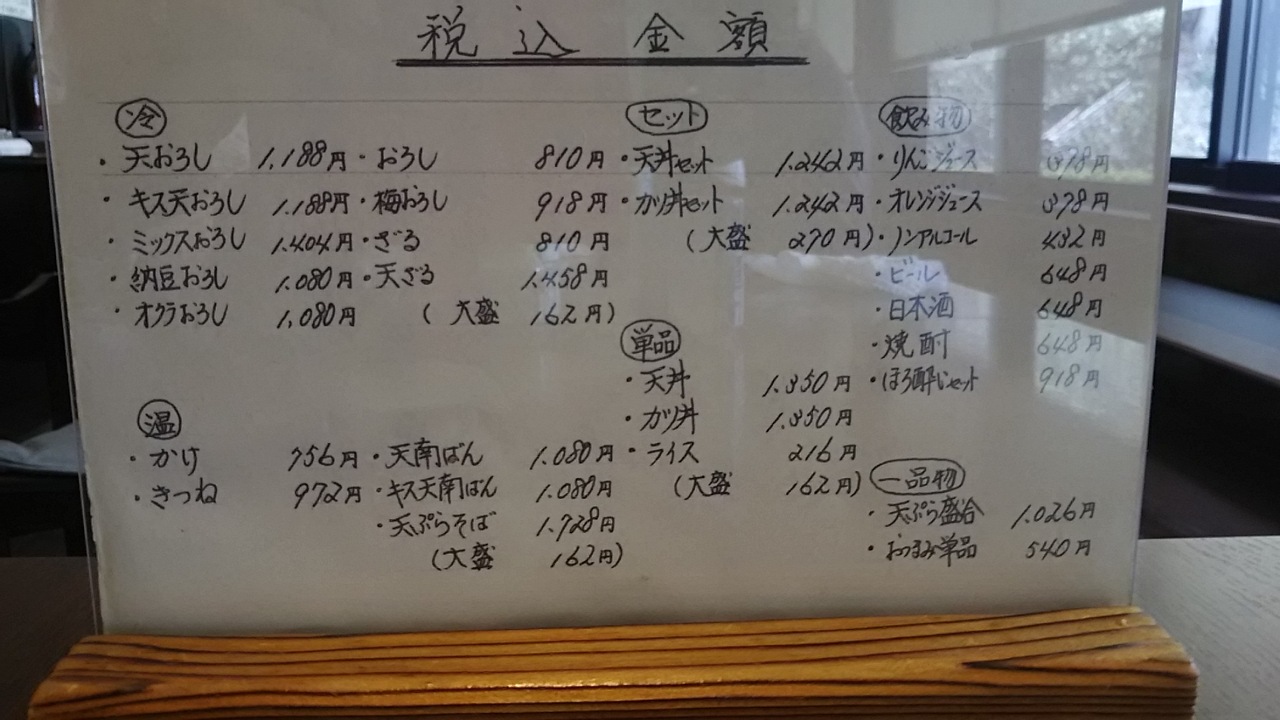 税込金額
冷
・天おろし 1.188円
・キス天おろし 1.188円
・ミックスおろし 1.404円
・納豆おろし 1.080円
・オクラおろし 1.080円
・おろし 810円
・梅おろし 918円
・ざる 810円
・天ざる 1.458円
(大盛 162円)
温
・かけ 756円
・きつね 972円
・天南ばん 1.080円
・キス天南ばん 1.080円
・天ぷらそば 1.728円
(大盛 162円)
セット
・天丼セット 1.242円
・カツ丼セット 1.242円
(大盛 270円)
単品
・天丼 1.350円
・カツ丼 1.350円
・ライス 216円
(大盛 162円)
飲み物
・りんごジュース 378円
・オレンジジュース 378円
・ノンアルコール 432円
・ビール 648円
・日本酒 648円
・焼酎 648円
・ほろ酔いセット 918円
一品物
・天ぷら盛合 1.026円
・おつまみ単品 540円